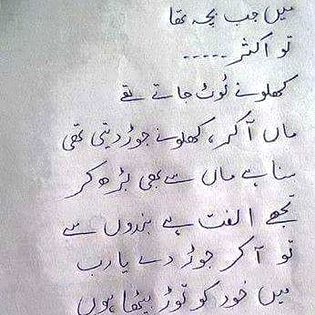 میں جب بچہ تھا
تو اکثر -----
کھلونے ٹوٹ جاتے تھے
ماں آکر، کھلونے جوڑ دیتی تھی
سنا ہے ماں سے بھی بڑھ کر
تجھے الفت ہے بندوں سے
تو آکر جوڑ دے یا رب
میں خود کو توڑ بیٹھا ہوں